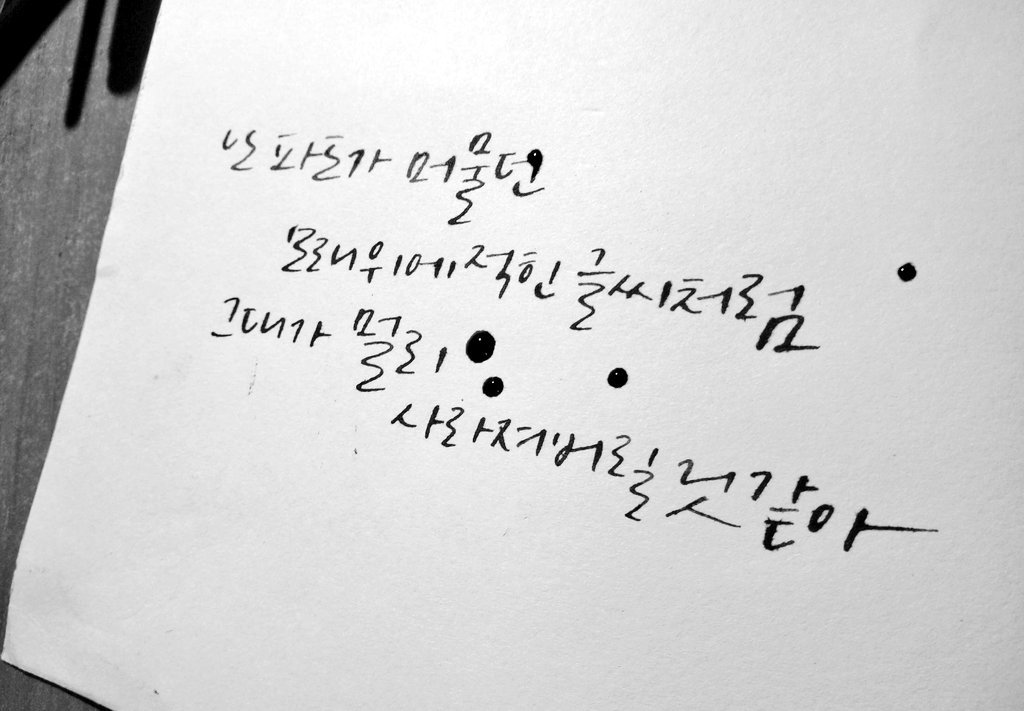 난 파도가 머물던
모래 위에 적힌 글씨처럼
그대가 멀리
사라져 버릴 것 같아